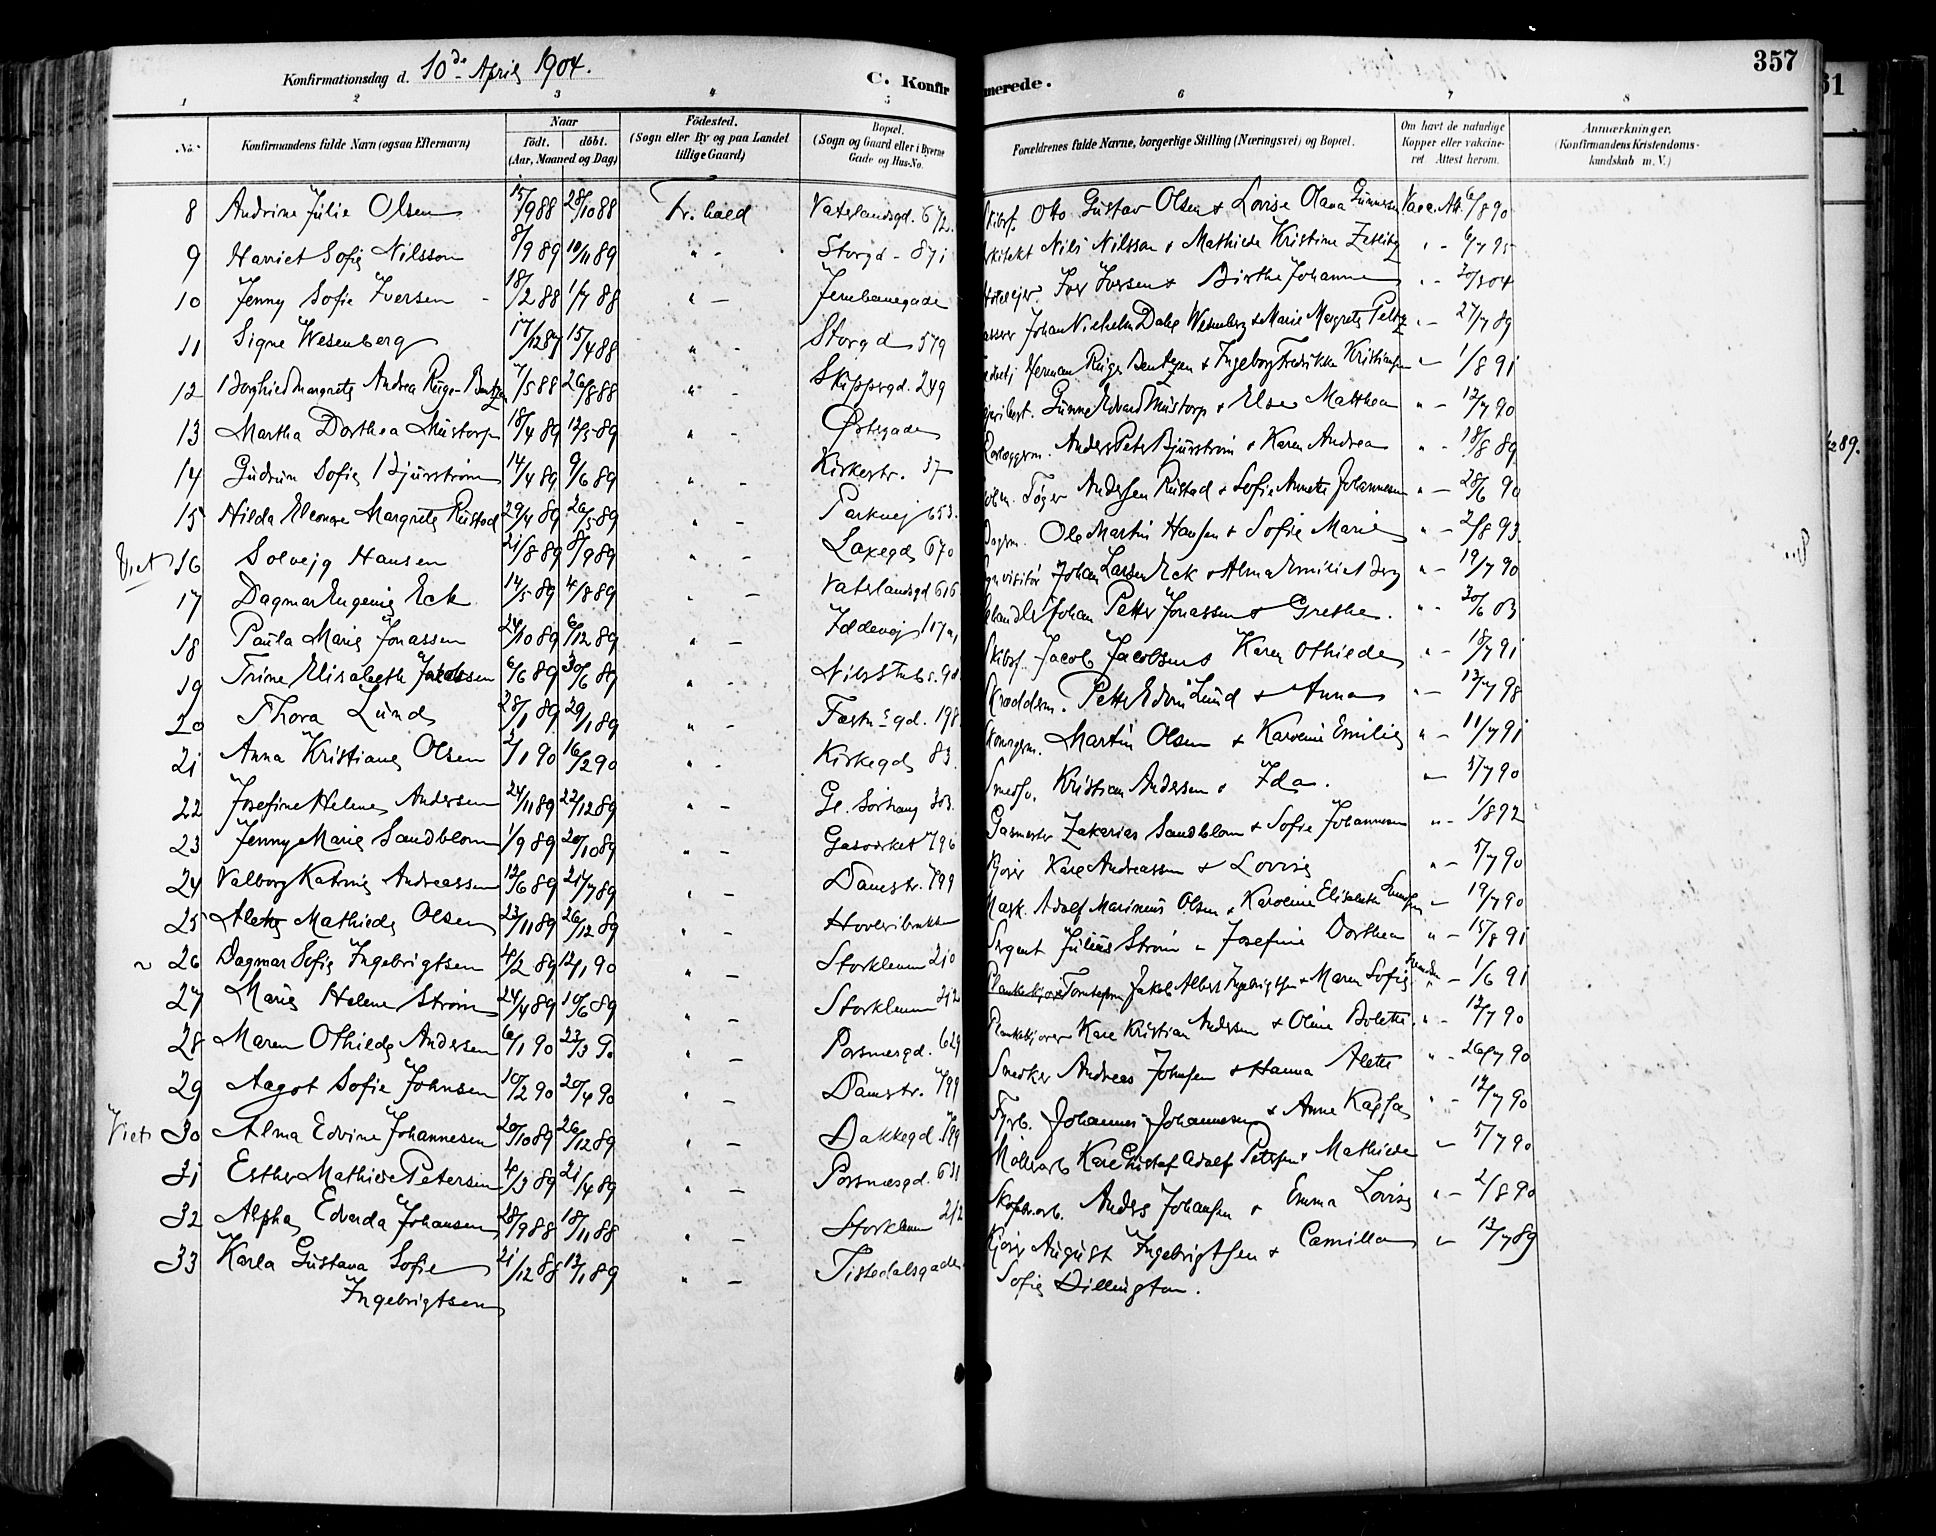 357
Konfirmationsdag d. 10de April 1904.
C. Konfirmerede.
1 2 3 4 5 6 7 8
No. Konfirmandens fulde Navn (ogsaa Efternavn) Naar födt. döbt. (Aar, Maaned og Dag) Födested. (Sogn eller By og paa Landet tillige Gaard) Bopæl. (Sogn og Gaard eller i Byerne Gade- og Hus-No. Forældrenes fulde Navne, borgerlige Stilling (Næringsvei) og Bopæl. Om havt de naturlige Kopper eller vakcineret. Attest herom. Anmærkninger. (Konfirmandens Kristendomskundskab m. V.)
8 Andrine Julie Olsen 15/9 88 28/10 88 Fr.hald Vaterlandsgd. 672. Skibsf. Otto Gustav Olsen & Lovise Olava Gunnersen Vacc. Att. 6/8 90
9 Harriet Sofie Nilsson 8/9 89 10/11 89 " - Storgd - 871 Arkitekt Nils Nilsson & Mathilde Kristine Zetlitz " - 6/7 95
10 Jenny Sofie Iversen 18/2 88 1/7 88 " - Jernbanegade Hotelejer. Iver Iversen & Birthe Johanne " - 30/3 04
11 Signe Wesenberg 17/12 87 15/4 88 " - Storgd 579 Johan Vilhelm Dahl Wesenberg & Marie Margrete Peltz " - 27/7 89
12 Borghild Margrete Andrea Riige-Bentzen 7/5 88 26/8 88 " - Skippergd. 249 Herman Riige Bentzen & Ingeborg Fredrikke Kristiansen " - 1/8 91
13 Martha Dorthea Mustorp 18/4 89 12/5 89 " - Østegade Gunne Edvard Mustorp & Else Matthea " - 12/7 90
14 Gudrun Sofie Bjurstrøm 14/4 89 9/6 89 " - Kirkestr. 37 Anders Peter Bjurstrøm & Karen Andrea " - 18/8 89
15 Hilda Eleonore Margrete Rustad 29/4 89 26/5 89 " - Parkvej 653. Tøger Andersen Rustad & Sofie Annette Johannesen " - 28/6 90
Viet 16 Solvejg Hansen 21/8 89 8/9 89 " - Laxegd 670 Dagsm. Ole Martin Hansen & Sofie Marie " - 2/8 93.
17 Dagmar Eugenie Eck 14/5 89 4/8 89 " - Vaterlandsgd 616 Johan Larsen Eck & Alma Emilie Berg " - 19/7 90
18 Paula Marie Jonassen 24/10 89 6/12 89 " - Iddevej 117a, Johan Petter Jonassen & Grethe. " - 30/6 03
19 Trine Elisabeth Jacobsen 6/6 89 30/6 89 " - Nils Stubs. 98 Skibsf. Jacob Jacobsen & Karen Othilde " - 18/7 91
20 Thora Lund 28/1 89 29/1 89 " - Fæstn.s gd. 198 Skræddem. Petter Edvin Lund & Anna " - 12/7 98
21 Anna Kristiane Olsen 2/1 90 16/2 90 " - Kirkegd 83. Martin Olsen & Karoline Emilie " - 11/7 91
22 Josefine Helene Andersen 24/11 89 22/12 89 " - Gl. Sörhaug 303. Smedsv. Kristian Andersen & Ida. " - 5/7 90
23 Jenny Marie Sandblom 1/9 89 20/10 89 " - Gasværket 796 Gasmester Zakarias Sandblom & Sofie Johannesen " - 1/8 92
24 Valborg Katrine Andreassen 12/6 89 21/7 89 " - Damstr. 799 Kjører Karl Andreassen & Lovise " - 5/7 90
25 Alette Mathilde Olsen 23/11 89 26/12 89 " - Hovleribrukket Mask. Adolf Marinius Olsen & Karoline Elisabeth " - 19/7 90
26 Dagmar Sofie Ingebrigtsen 4/2 89 12/1 90 " - Storklemm 210 Sergent Julius Strøm & Josefine Dorthea " - 15/8 91
27 Marie Helene Strøm 24/4 89 10/6 89 " - Storklemm 212 Plankekjører Tomteform. Jakob Albert Ingebrigtsen & Maren Sofie " - 1/6 91
28 Maren Othilde Andersen 6/1 90 23/3 90 " - Porsnesgd. 629 Plankekjører Karl Kristian Andersen & Oline Bolette. " - 12/7 90
29 Aagot Sofie Johnsen 10/2 90 20/4 90 " - Damstr. 799 Snedker Andreas Johnsen & Hanna Alette " - 26/7 90
Viet 30 Alma Edvine Johannesen 20/10 89 26/12 89 " - Bakkegd. 199 Fyrb. Johannes Johannesen & Anne Kajsa " - 12/7 90
31 Esther Mathilde Petersen 4/3 89 21/4 89 " - Porsnesgd. 631 Møllearb Karl Gustaf Adolf Petersen & Mathilde " - 5/7 90
32 Alpha Edvarda Johansen 28/9 88 18/11 88 " - Storklemm 212 Skofabr.arb. Anders Johansen & Emma Lovise " - 2/8 90
33 Karla Gustava Sofie Ingebrigtsen 21/12 88 13/1 89 " - Tistedalsgaden Kjører August Ingebrigtsen & Camilla Sofie Dillington. " - 13/7 89